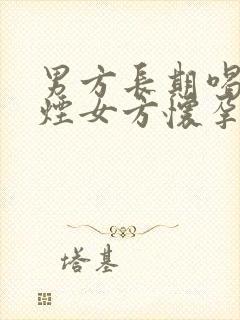 男方長期喝
煙女方懷孕
塔基